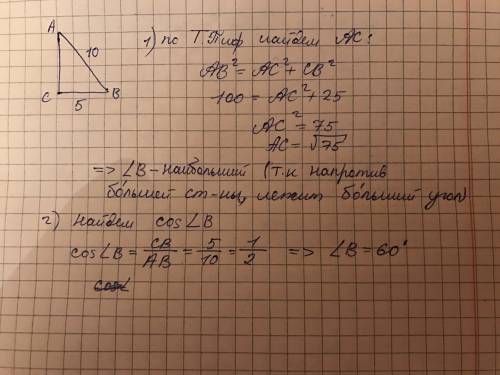 A
10
C
5
B
1) по Т Пиф найдем AC:
AB² = AC² + CB²
100 = AC² + 25
AC² = 75
AC = √75
=> ∠B - наибольший (т.к напротив
бо́льшей ст-ны, лежит бо́льший угол)
2) Найдем cos∠B
cos∠B = CB/AB = 5/10 = 1/2 => ∠B = 60°
cos∠